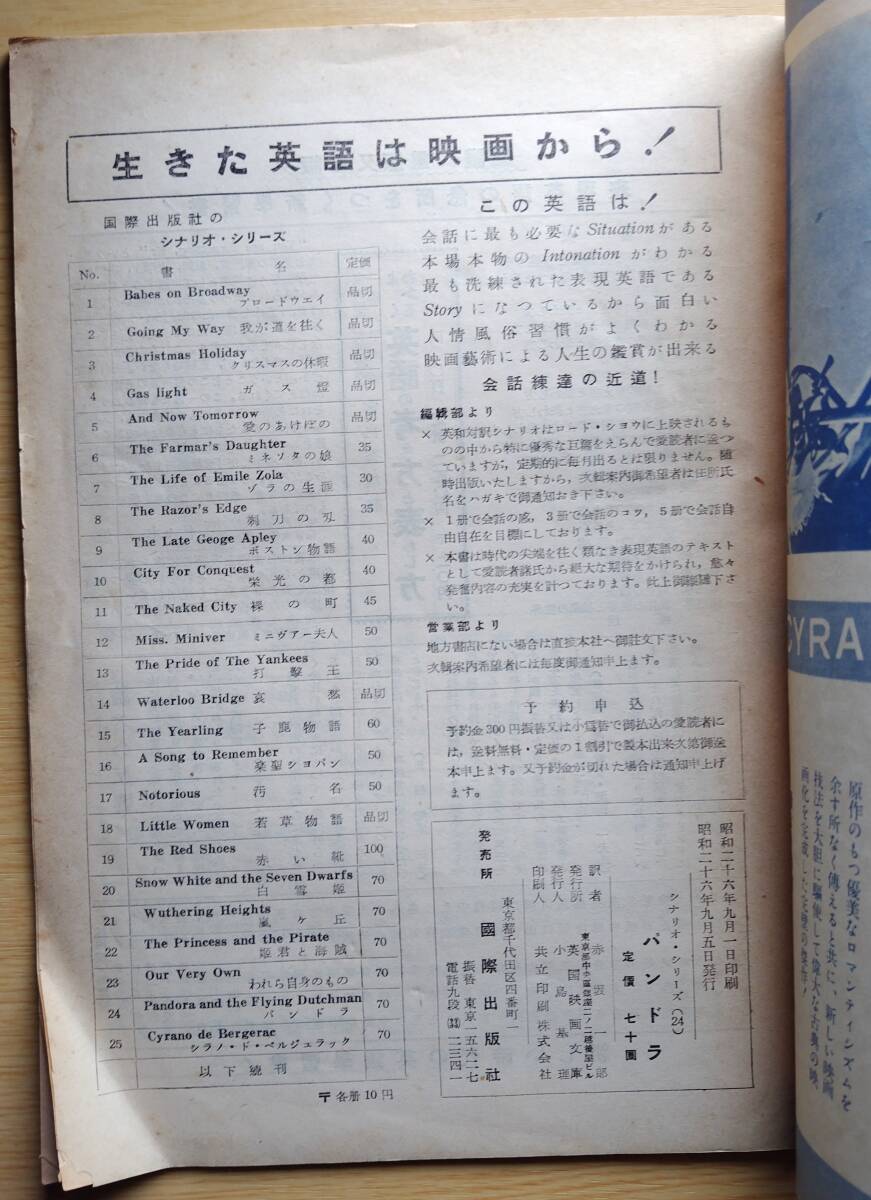 生きた英語は映画から！
国際出版社の
シナリオ・シリーズ
No. 書名 定価
1 Babes on Broadway ブロードウエイ 品切
2 Going My Way 我が道を往く 品切
3 Christmas Holiday クリスマスの休暇 品切
4 Gas light ガス燈 品切
5 And Now Tomorrow 愛のあけぼの 品切
6 The Farmar's Daughter ミネソタの娘 35
7 The Life of Emile Zola ゾラの生涯 30
8 The Razor's Edge 剃刀の刃 35
9 The Late Geoge Apley ボストン物語 40
10 City For Conquest 栄光の都 40
11 The Naked City 裸の町 45
12 Miss. Miniver ミニヴアー夫人 50
13 The Pride of The Yankees 打撃王 50
14 Waterloo Bridge 哀愁 品切
15 The Yearling 子鹿物語 60
16 A Song to Remember 楽聖シヨパン 50
17 Notorious 汚名 50
18 Little Women 若草物語 品切
19 The Red Shoes 赤い靴 100
20 Snow White and the Seven Dwarfs 白雪姫 70
21 Wuthering Heights 嵐ヶ丘 70
22 The Princess and the Pirate 姫君と海賊 70
23 Our Very Own われら自身のもの 70
24 Pandora and the Flying Dutchman パンドラ 70
25 Cyrano de Bergerac シラノ・ド・ベルジェラック 70
以下続刊
〒各册10円
この英語は！
会話に最も必要なSituationがある
本場本物のIntonationがわかる
最も洗練された表現英語である
Storyになつているから面白い
人情風俗習慣がよくわかる
映画藝術による人生の鑑賞が出来る
会話練達の近道！
編緝部より
× 英和対訳シナリオはロード・ショウに上映されるも
のの中から特に優秀な巨篇をえらんで愛読者に送つ
ていますが，定期的に毎月出るとは限りません。随
時出版いたしますから，次輯案内御希望者は住所氏
名をハガキで御通知おき下さい。
× 1册で会話の感，3册で会話のコツ，5册で会話自
由自在を目標にしております。
× 本書は時代の尖端を往く類なき表現英語のテキスト
として愛読者諸氏から絶大な期待をかけられ，愈々
発奮内容の充実を計つております。此上御
下さ
い。
営業部より
地方書店にない場合は直接本社へ御註文下さい。
次輯案内希望者には毎度御通知申上ます。
予約申込
予約金300円振替又は小爲替で御払込の愛読者に
は，送料無料・定価の1割引で製本出来次第御送
本申上ます。又予約金が切れた場合は通知申上げ
ます。
昭和二十六年九月一日印刷
昭和二十六年九月五日発行
シナリオ・シリーズ(24)
パンドラ
定價 七十圓
訳者 赤坂一郎
東京都中央区銀座二ノ二越後屋ビル
発行所 英国映画文庫
発行人 小島基理
印刷人 共立印刷株式会社
東京都千代田区四番町一
発売所 國際出版社
振替 東京一五六二二七
電話九段(33)一二三四一
CYRA
原作のもつ優美なロマンティシズムを
余す所なく傳えると共に、新しい映画
技法を大胆に驅使して偉大な古典の映
画化を完成した